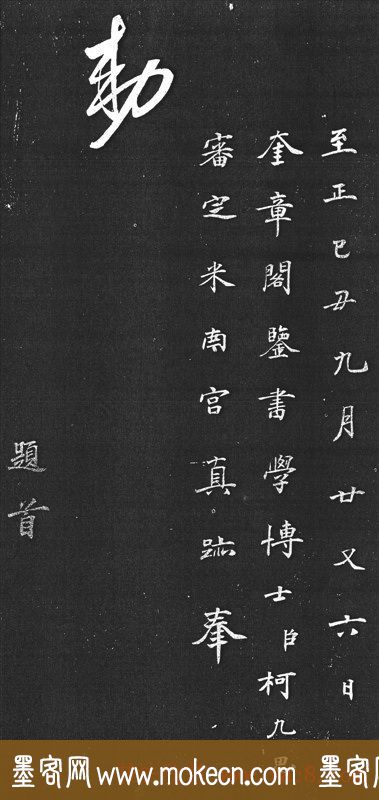 至正己丑九月廿又六日
奎章閣鑒書學博士臣柯九
審定米南宮真跡奉
勅
題首
墨客网 www.mokecn.com 墨客网